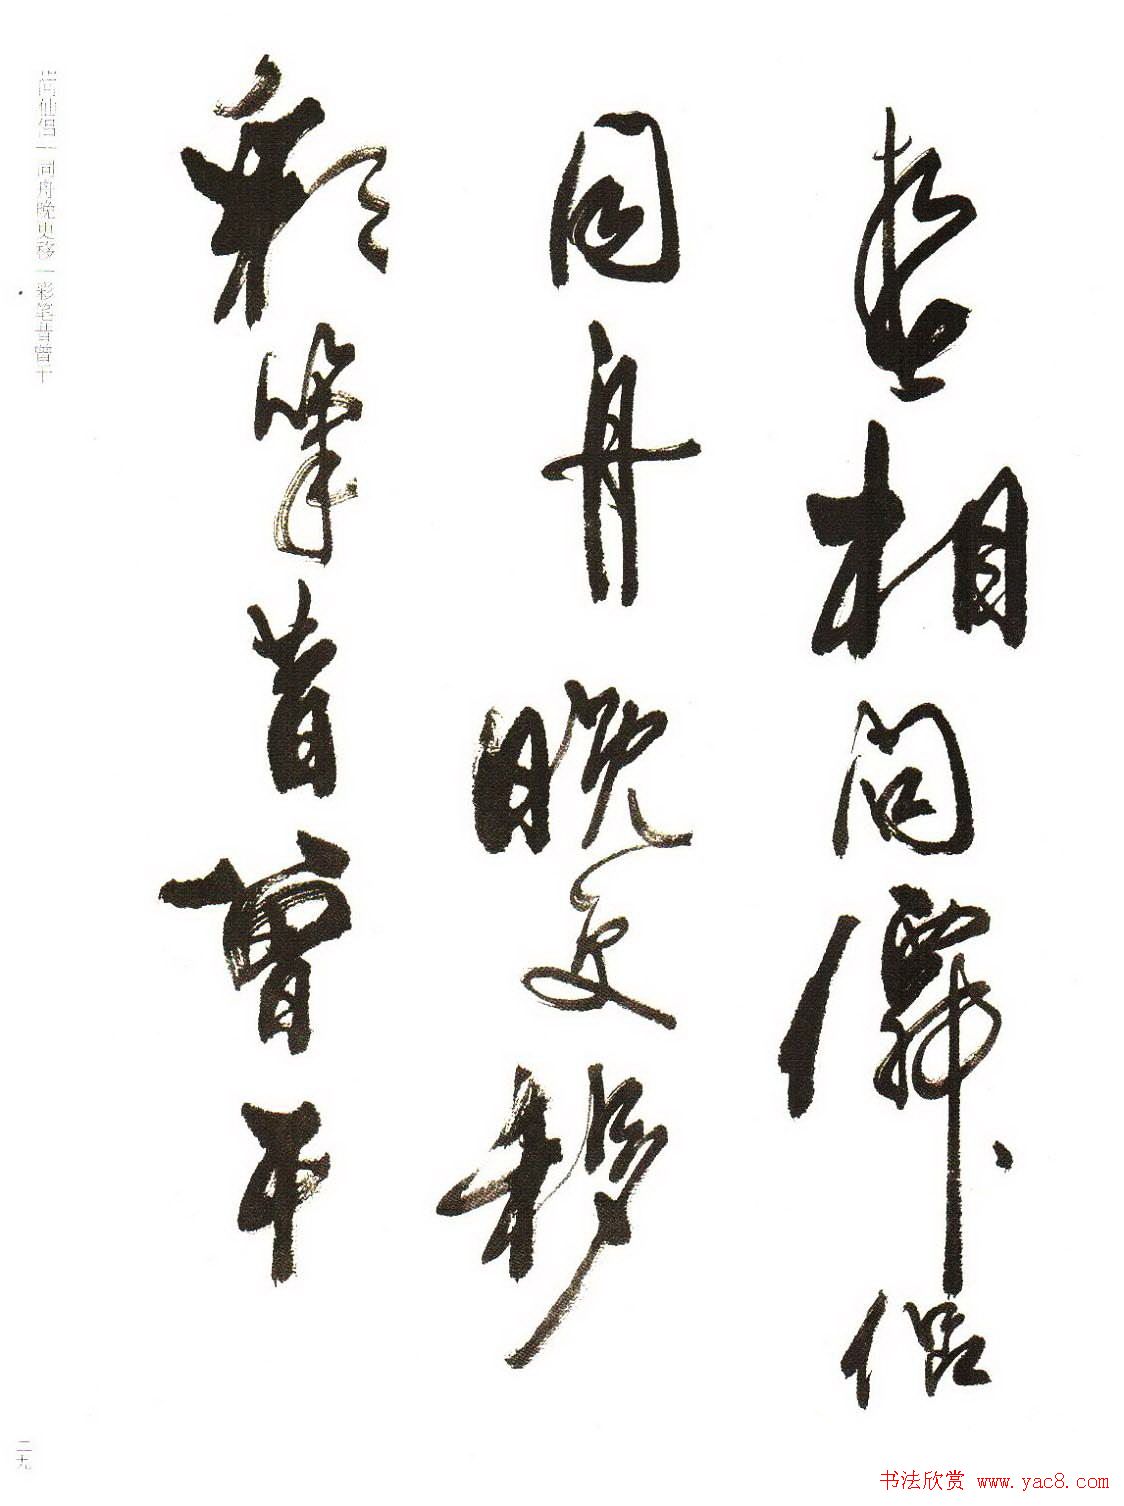 春相問僊侶
同舟晚更移
彩筆昔曾干
问仙侣｜同舟晚更移｜彩笔昔曾干
二九
书法欣赏 www.yac8.com